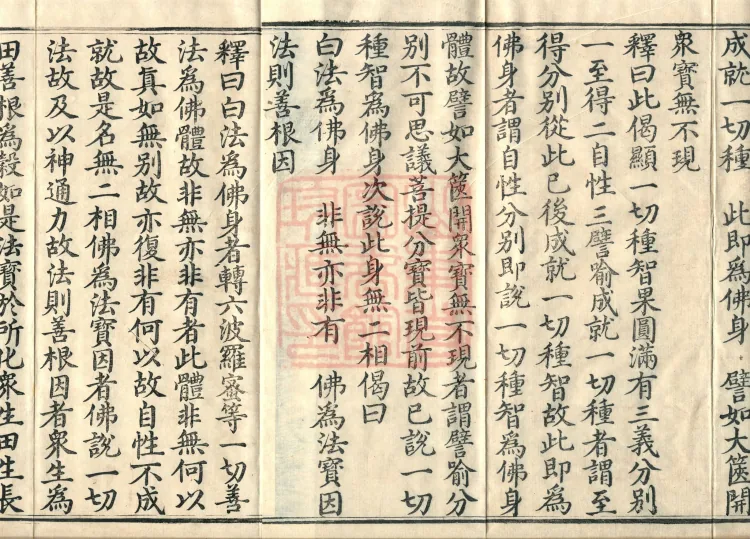 成就一切種　此即為佛身　譬如大篋開
衆寶無不現
釋曰此偈顯一切種智果圓滿有三義分別
一至得二自性三譬喻成就一切種者謂至
得分別從此已後成就一切種智故此即為
佛身者謂自性分別即說一切種智為佛身
體故譬如大篋開衆寶無不現者謂譬喻分
別不可思議菩提分寶皆現前故已說一切
種智為佛身次說此身無二相偈曰
白法為佛身　非無亦非有　佛為法寶因
法則善根因
釋曰白法為佛身者轉六波羅蜜等一切善
法為佛體故非無亦非有者此體非無何以
故真如無別故亦復非有何以故自性不成
就故是名無二相佛為法寶因者佛說一切
法故及以神通力故法則善根因者衆生為
田善根為穀如是法寶於所化衆生田生長